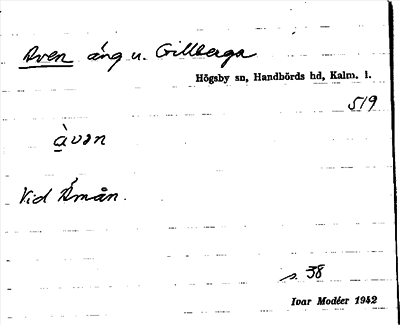 Aven äng u. Gillberga
Högsby sn, Handbörds hd, Kalm. l.
519
àvən
Vid Åmån.
s. 38
Ivar Modéer 1942